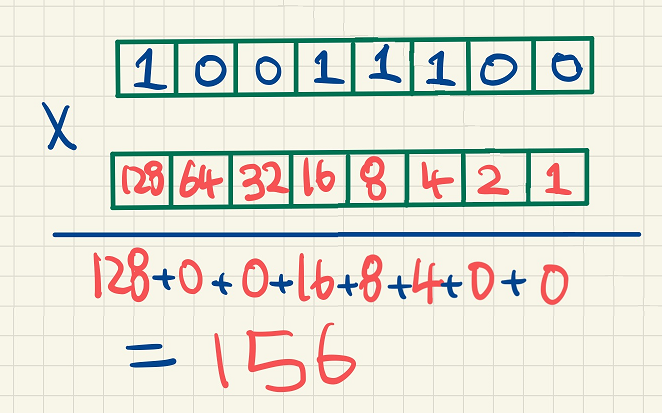 1 0 0 1 1 1 0 0
X
128 64 32 16 8 4 2 1
128+0+0+16+8+4+0+0
=156